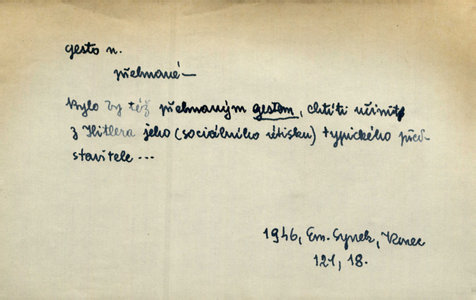 gesto n.
přehnané —
Bylo by též přehnaným gestem, chtíti učiniti
z Hitlera jeho (sociálního útisku) typického před-
stavitele ...
1946, Em. Synek, Konec
121, 18.